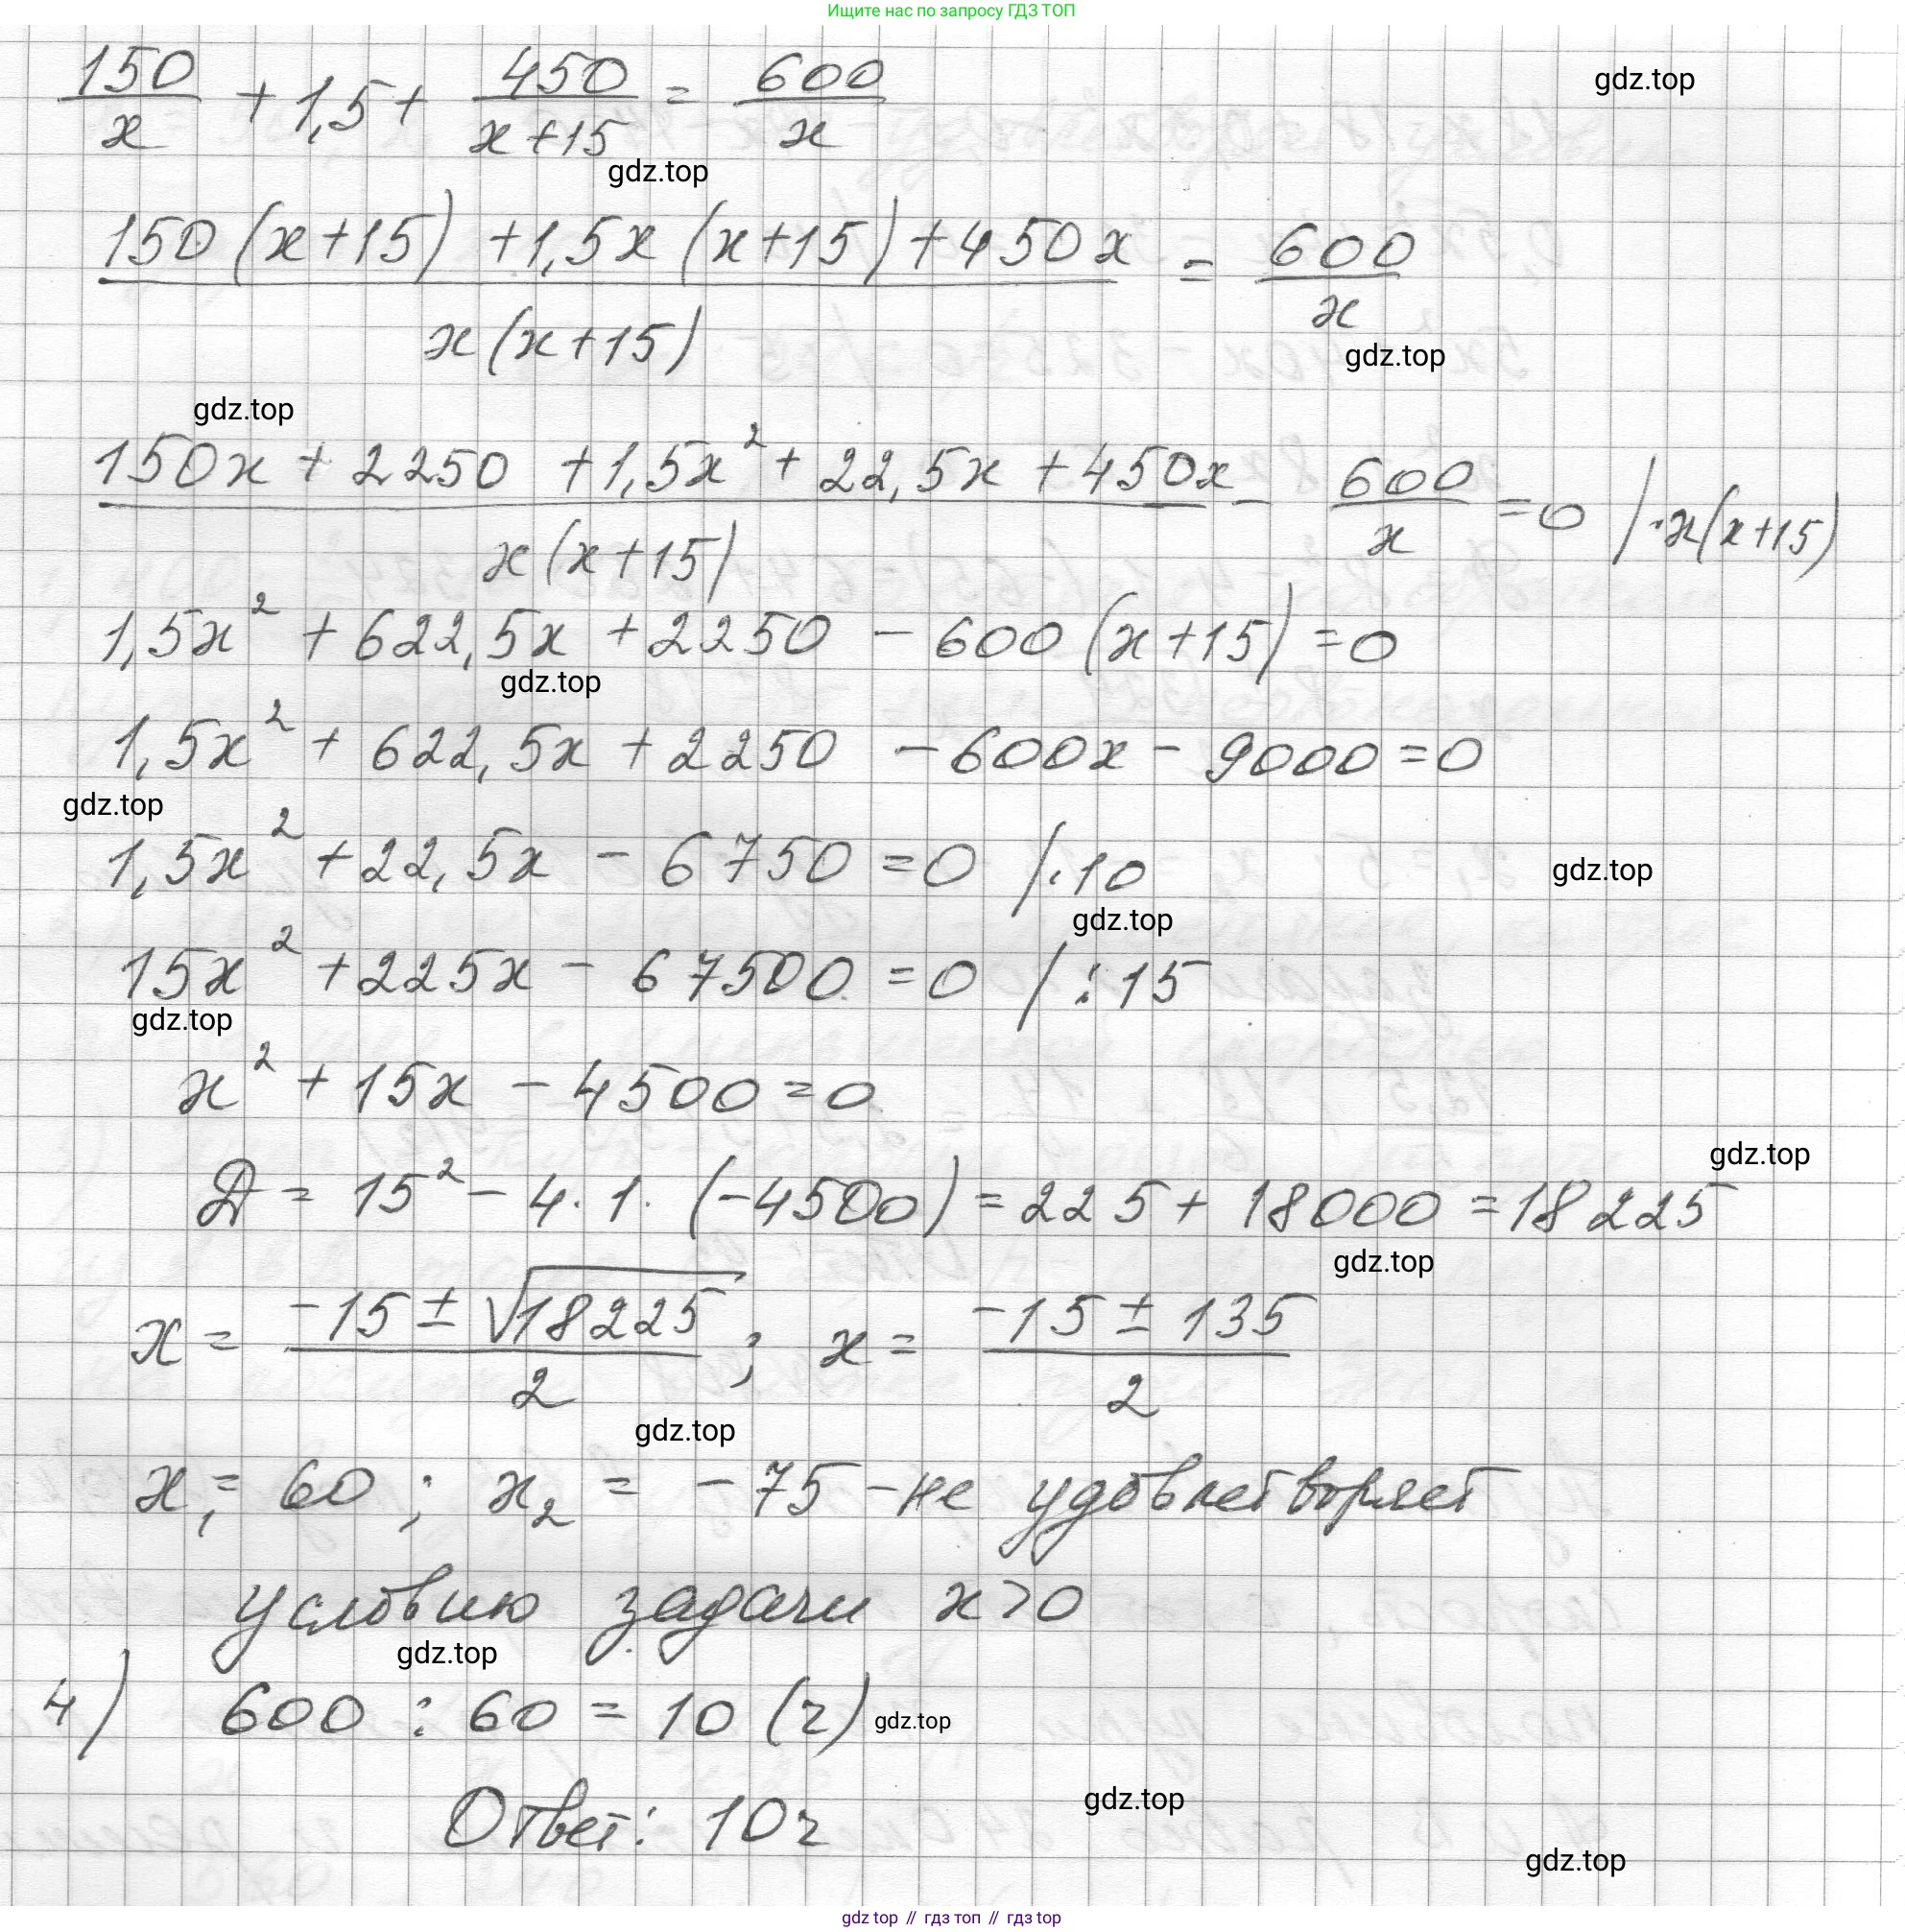 Ищите нас по запросу ГДЗ ТОП
150/x + 1,5 + 450/(x+15) = 600/x
gdz.top
gdz.top
(150(x+15) + 1,5x(x+15) + 450x)/(x(x+15)) = 600/x
gdz.top
gdz.top
(150x + 2250 + 1,5x² + 22,5x + 450x)/(x(x+15)) - 600/x = 0 /·x(x+15)
1,5x² + 622,5x + 2250 - 600(x+15) = 0
gdz.top
1,5x² + 622,5x + 2250 - 600x - 9000 = 0
gdz.top
1,5x² + 22,5x - 6750 = 0 /·10
gdz.top
gdz.top
15x² + 225x - 67500 = 0 /:15
gdz.top
x² + 15x - 4500 = 0
gdz.top
Д = 15² - 4·1·(-4500) = 225 + 18000 = 18225
gdz.top
x = (-15 ± √18225)/2 ; x = (-15 ± 135)/2
gdz.top
x₁ = 60 ; x₂ = -75 - не удовлетворяет
условию задачи x > 0
gdz.top
4) 600 : 60 = 10 (ч)
gdz.top
gdz.top
Ответ: 10 ч
gdz.top
gdz top // гдз топ // гдз top